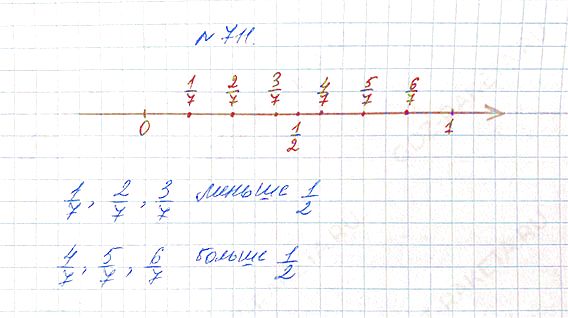 № 711.
1/7 2/7 3/7 4/7 5/7 6/7
0 1/2 1
1/7, 2/7, 3/7 меньше 1/2
4/7, 5/7, 6/7 больше 1/2